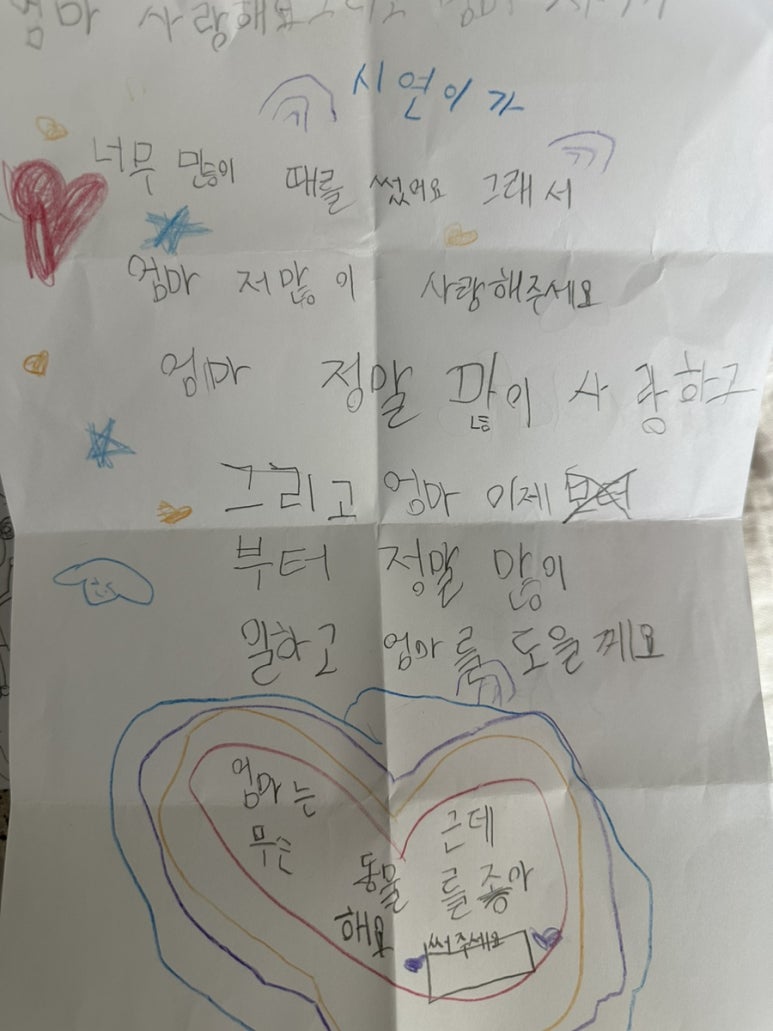 엄마 사랑해요 그리고 엄마
시연이가
너무 많이 때를 썼어요 그래서
엄마 저 많이 사랑해주세요
엄마 정말 많이 사랑하구
그리고 엄마 이제
부터 정말 많이
일하고 엄마를 도울께요
엄마는 근데
무슨 동물를 좋아
해요
써주세요